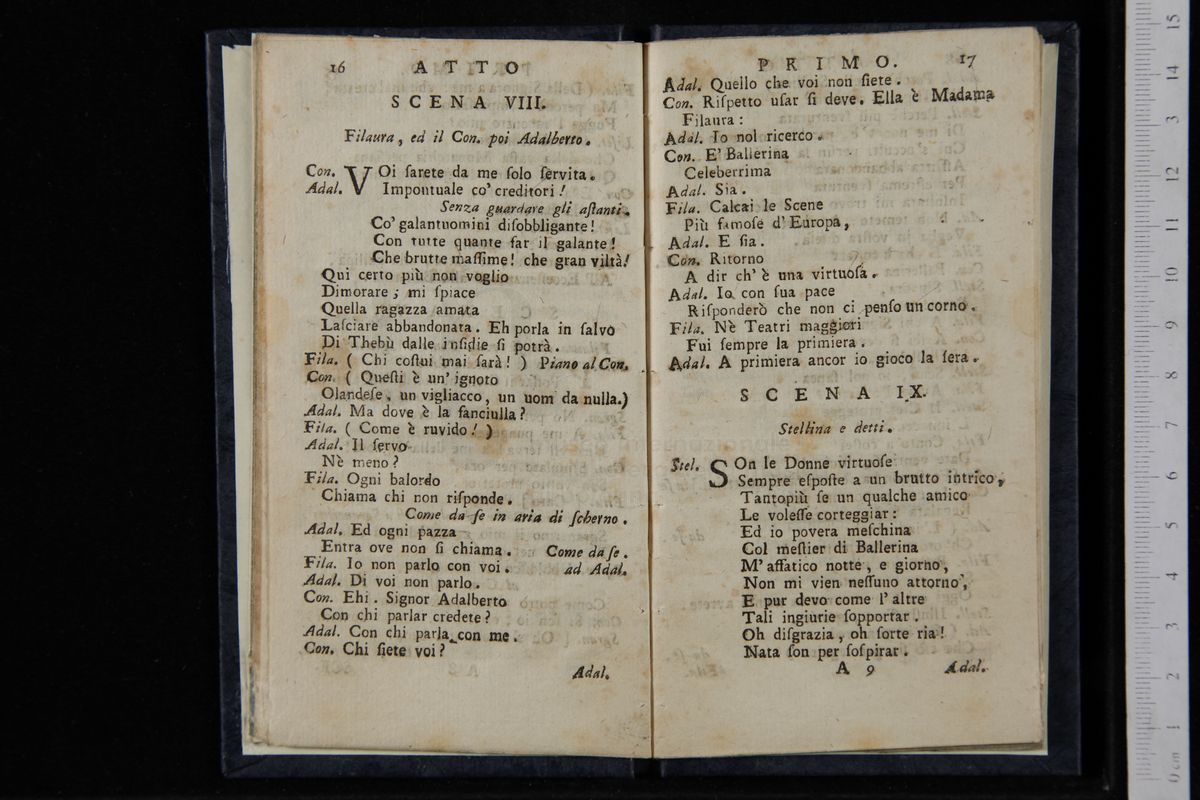 16 ATTO
SCENA VIII.
Filaura, ed il Con. poi Adalberto.
Con. VOi ſarete da me ſolo ſervita.
Adal. Impontuale co' creditori!
Senza guardare gli aſtanti.
Co' galantuomini diſobbligante!
Con tutte quante far il galante!
Che brutte maſſime! che gran viltà!
Qui certo più non voglio
Dimorare; mi ſpiace
Quella ragazza amata
Laſciare abbandonata. Eh porla in ſalvo
Di Thebù dalle inſidie ſi potrà.
Fila. ( Chi coſtui mai ſarà! ) Piano al Con.
Con. ( Queſti è un' ignoto
Olandeſe, un vigliacco, un uom da nulla.)
Adal. Ma dove è la fanciulla?
Fila. ( Come è ruvido! )
Adal. Il ſervo
Nè meno?
Fila. Ogni balordo
Chiama chi non riſponde.
Come da ſe in aria di ſcherno.
Adal. Ed ogni pazza
Entra ove non ſi chiama. Come da ſe.
Fila. Io non parlo con voi. ad Adal.
Adal. Di voi non parlo.
Con. Ehi. Signor Adalberto
Con chi parlar credete?
Adal. Con chi parla con me.
Con. Chi ſiete voi?
Adal.
PRIMO. 17
Adal. Quello che voi non ſiete.
Con. Riſpetto uſar ſi deve. Ella è Madama
Filaura:
Adal. Io nol ricerco.
Con. E' Ballerina
Celeberrima
Adal. Sia.
Fila. Calcai le Scene
Più famoſe d'Europa,
Adal. E ſia.
Con. Ritorno
A dir ch' è una virtuoſa.
Adal. Io con ſua pace
Riſponderò che non ci penſo un corno.
Fila. Nè Teatri maggiori
Fui ſempre la primiera.
Adal. A primiera ancor io gioco la ſera.
SCENA IX.
Stellina e detti.
Stel. SOn le Donne virtuoſe
Sempre eſpoſte a un brutto intrico,
Tantopiù ſe un qualche amico
Le voleſſe corteggiar:
Ed io povera meſchina
Col meſtier di Ballerina
M' affatico notte, e giorno,
Non mi vien neſſuno attorno,
E pur devo come l' altre
Tali ingiurie ſopportar.
Oh diſgrazia, oh ſorte ria!
Nata ſon per ſoſpirar.
A 9 Adal.
15
14
13
12
11
10
9
8
7
6
5
4
3
2
1
0 cm